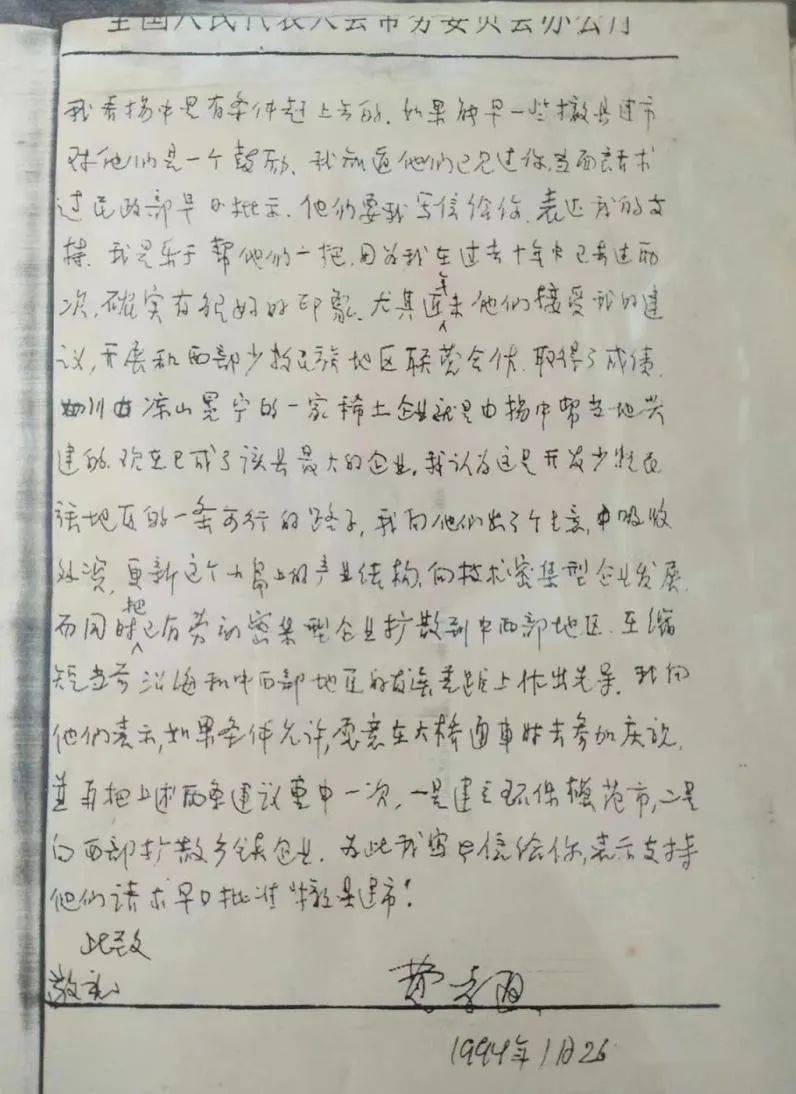 全国人民代表大会常务委员会办公厅
我看扬中是有条件赶上去的。如果能早一些撤县建市
对他们是一个鼓励。我知道他们已见过你,当面请求
过民政部早日批示。他们要我写信给你,表达我的支
持。我是乐于帮他们一把,因为我在过去十年中已去过两
次,确实有很好的印象。尤其近年来他们接受我的建
议,开展和西部少数民族地区联营合作,取得了成绩。
四川凉山冕宁的一家稀土企业就是由扬中帮当地兴
建的,现在已成了该县最大的企业。我认为这是开发少数民
族地区的一条可行的路子,我向他们出了个主意,吸收
外资,更新这个小岛上的产业结构,向技术密集型企业发展,
而同时把已有劳动密集型企业扩散到中西部地区,在缩
短当前沿海和中西部地区的发展差距上作出先导。我向
他们表示,如果条件允许,愿意在大桥通车时去参加庆祝,
并再把上述两条建议重申一次,一是建立环保模范市,二是
向西部扩散乡镇企业。为此我写信给你,表示支持
他们请求早日批准“撤县建市”!
此致
敬礼
费孝通
1994年1月26